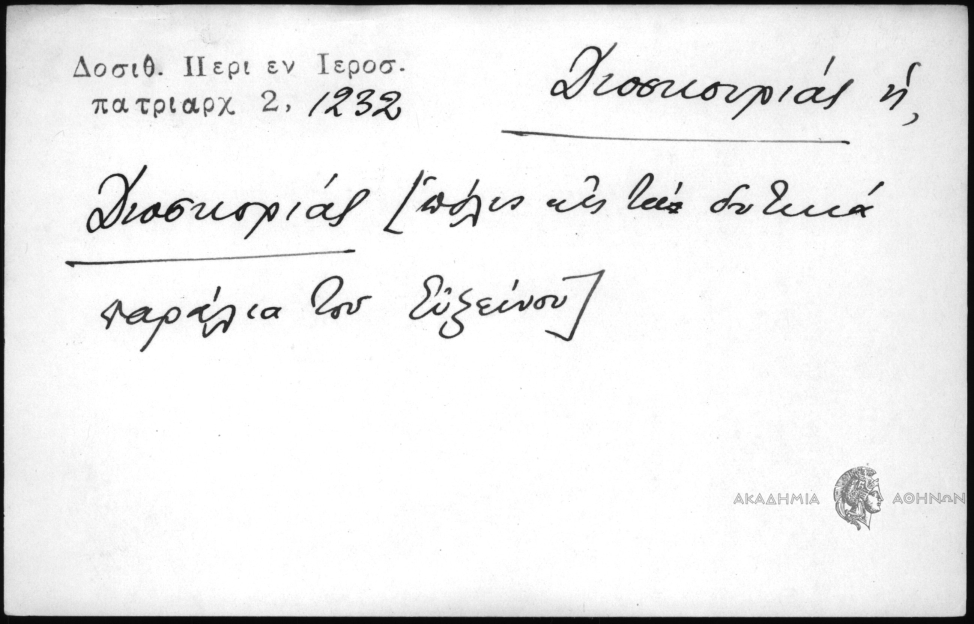 Δοσιθ. Περι εν Ιεροσ.
πατριαρχ 2, 1232
Διοσκουριάς ἡ,
Διοσκοριάς [πόλις εἰς τὰ δυτικά
παράλια του Εὐξείνου]
ΑΚΑΔΗΜΙΑ ΑΘΗΝΩΝ